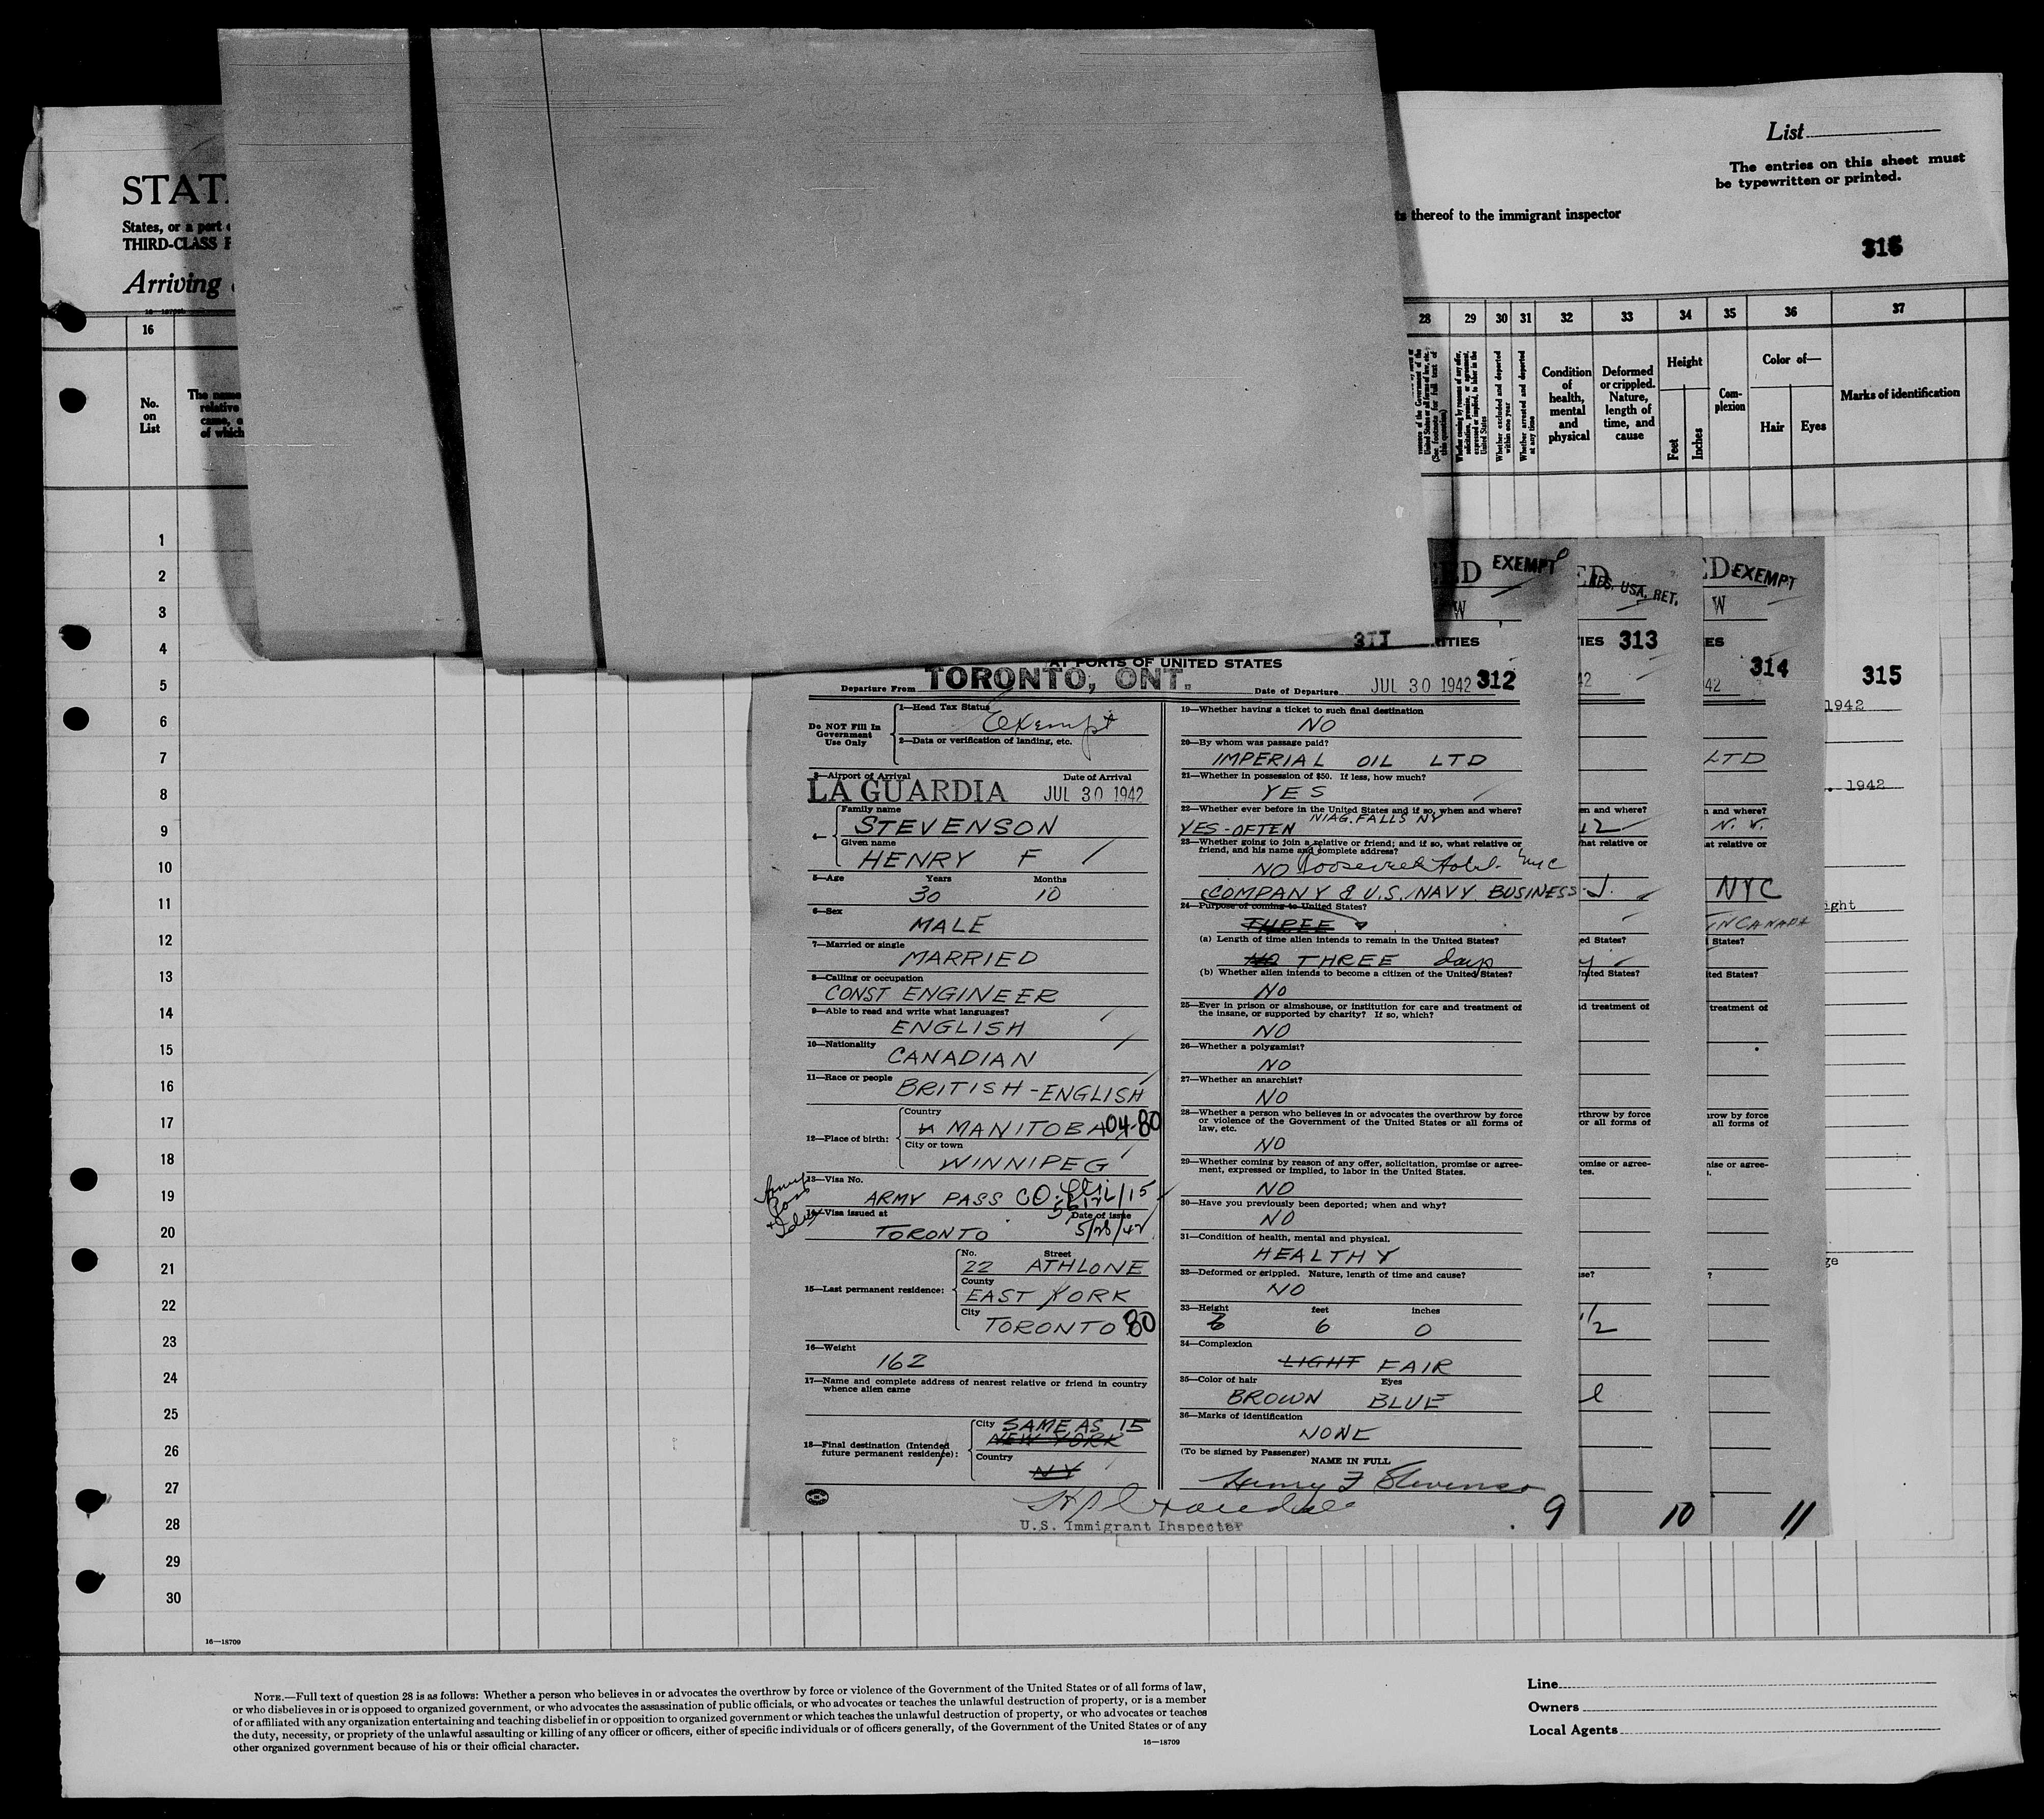 List
The entries on this sheet must
be typewritten or printed.
STAT
States, or a port
THIRD-CLASS
Arriving
thereof to the immigrant inspector
316
16
28 29 30 31 32 33 34 35 36 37
No.
on
List
The name
relative
came,
of which
United States or all forms of law, etc.
(See footnote for full text of
this question)
Whether coming by reason of any offer,
solicitation, promise, or agreement,
expressed or implied, to labor in the
United States
Whether excluded and deported
within one year
Whether arrested and deported
at any time
Condition
of
health,
mental
and
physical
Deformed
or crippled.
Nature,
length of
time, and
cause
Height
Feet
Inches
Com-
plexion
Color of—
Hair
Eyes
Marks of identification
1
2
3
4
5
6
7
8
9
10
11
12
13
14
15
16
17
18
19
20
21
22
23
24
25
26
27
28
29
30
16—18709
ED EXEMPT
W
311
ITIES
AT PORTS OF UNITED STATES
Departure From TORONTO, ONT.
Date of Departure JUL 30 1942 312
Do NOT Fill In
Government
Use Only
1—Head Tax Status
Exempt
2—Data or verification of landing, etc.
3—Airport of Arrival Date of Arrival
LA GUARDIA JUL 30 1942
4—
Family name
STEVENSON
Given name
HENRY F
5—Age Years Months
30 10
6—Sex
MALE
7—Married or single
MARRIED
8—Calling or occupation
CONST ENGINEER
9—Able to read and write what languages?
ENGLISH
10—Nationality
CANADIAN
11—Race or people
BRITISH-ENGLISH
12—Place of birth:
Country
MANITOBA 04-80
City or town
WINNIPEG
13—Visa No.
ARMY PASS CO.
14—Visa issued at Date of issue
TORONTO 5/28/42
15—Last permanent residence:
No. Street
22 ATHLONE
County
EAST YORK
City
TORONTO 80
16—Weight
162
17—Name and complete address of nearest relative or friend in country
whence alien came
18—Final destination (Intended
future permanent residence):
City SAME AS 15
NEW YORK
Country
NY
U.S. Immigrant Inspector
19—Whether having a ticket to such final destination
NO
20—By whom was passage paid?
IMPERIAL OIL LTD
21—Whether in possession of $50. If less, how much?
YES
22—Whether ever before in the United States and if so, when and where?
YES-OFTEN NIAG. FALLS NY
23—Whether going to join a relative or friend; and if so, what relative or
friend, and his name and complete address?
NO Roosevelt Hotel NYC
COMPANY & U.S. NAVY BUSINESS
24—Purpose of coming to United States?
THREE
(a) Length of time alien intends to remain in the United States?
NO THREE days
(b) Whether alien intends to become a citizen of the United States?
NO
25—Ever in prison or almshouse, or institution for care and treatment of
the insane, or supported by charity? If so, which?
NO
26—Whether a polygamist?
NO
27—Whether an anarchist?
NO
28—Whether a person who believes in or advocates the overthrow by force
or violence of the Government of the United States or all forms of
law, etc.
NO
29—Whether coming by reason of any offer, solicitation, promise or agree-
ment, expressed or implied, to labor in the United States.
NO
30—Have you previously been deported; when and why?
NO
31—Condition of health, mental and physical.
HEALTHY
32—Deformed or crippled. Nature, length of time and cause?
NO
33—Height feet inches
6 0
34—Complexion
LIGHT FAIR
35—Color of hair Eyes
BROWN BLUE
36—Marks of identification
NONE
(To be signed by Passenger)
NAME IN FULL
Henry F Stevenson
9
ED
RES. USA. RET.
IES 313
42
en and where?
hat relative or
ed States?
nited States?
d treatment of
rthrow by force
or all forms of
omise or agree-
tes.
se?
1/2
10
ED EXEMPT
W
ES
314
42
LTD
n and where?
N.Y.
at relative or
NYC
IN CANADA
States?
ted States?
treatment of
row by force
all forms of
ise or agree-
?
11
315
1942
1942
ight
ge
NOTE.—Full text of question 28 is as follows: Whether a person who believes in or advocates the overthrow by force or violence of the Government of the United States or of all forms of law,
or who disbelieves in or is opposed to organized government, or who advocates the assassination of public officials, or who advocates or teaches the unlawful destruction of property, or is a member
of or affiliated with any organization entertaining and teaching disbelief in or opposition to organized government or which teaches the unlawful destruction of property, or who advocates or teaches
the duty, necessity, or propriety of the unlawful assaulting or killing of any officer or officers, either of specific individuals or of officers generally, of the Government of the United States or of any
other organized government because of his or their official character.
16—18709
Line
Owners
Local Agents